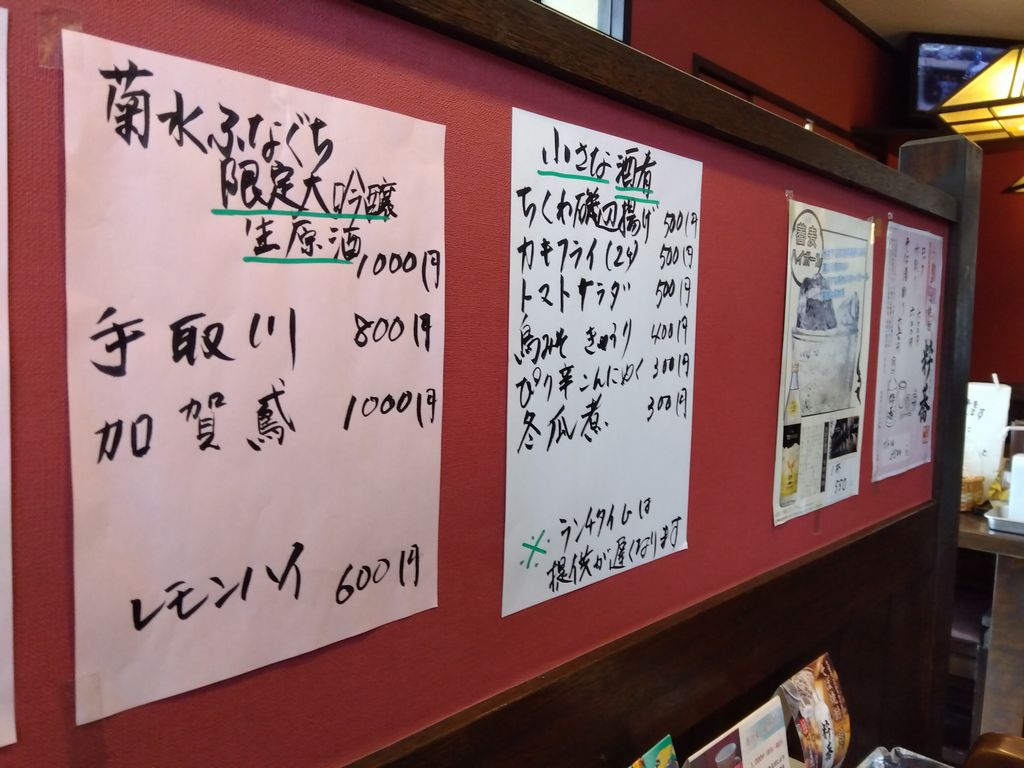 菊水ふなぐち
限定大吟醸
生原酒
1000円
手取川 800円
加賀鳶 1000円
レモンハイ 600円
小さな酒肴
ちくわ磯辺揚げ 500円
カキフライ(2ケ) 500円
トマトサラダ 500円
鳥みそきゅうり 400円
ぴり辛こんにゃく 300円
冬瓜煮 300円
※ ランチタイムは
提供が遅くなります
蕎麦
ハイボール
1杯
550